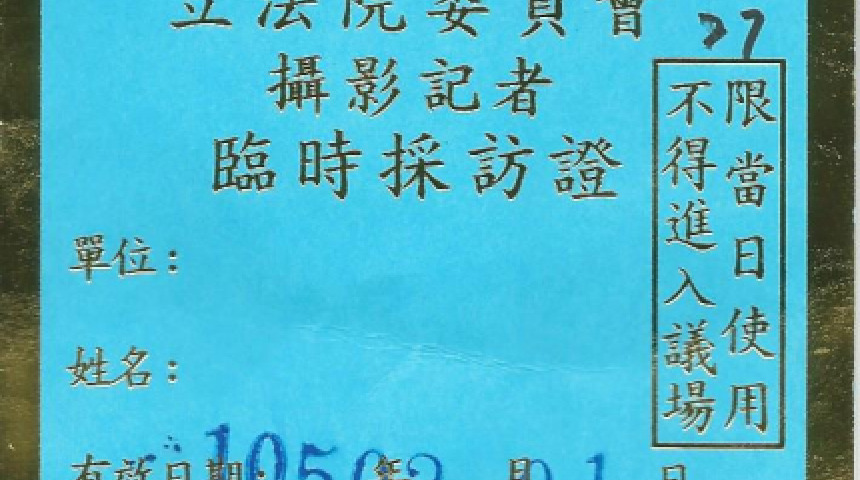 立法院委員會
27
攝影記者
臨時採訪證
限當日使用
不得進入議場
單位：
姓名：
有效日期：105年02月01日